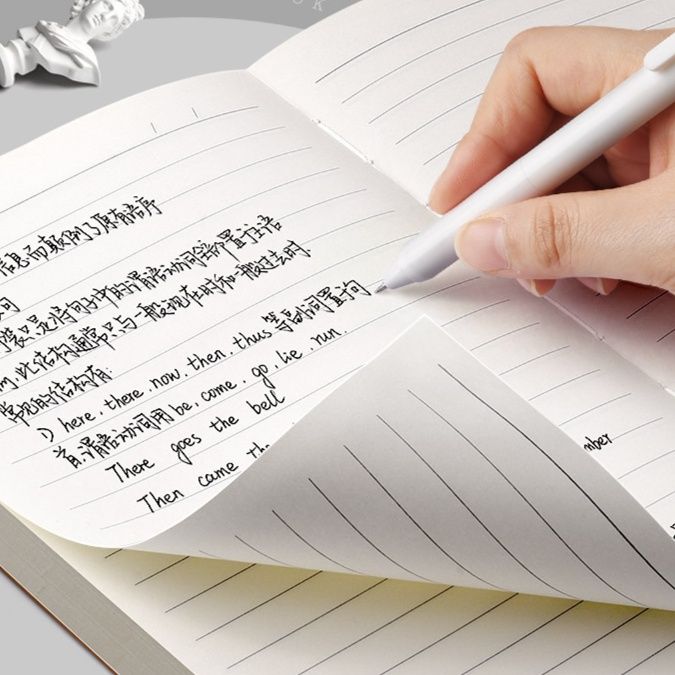 信息而颠倒了原有语序
词
倒装只是将句子中的谓语动词全部置于主语
前,此结构通常只与一般现在时和一般过去时.
常见的结构有:
1) here, there, now, then, thus 等副词置于句
首,谓语动词用 be, come, go, lie, run.
There goes the bell
Then came th
mber